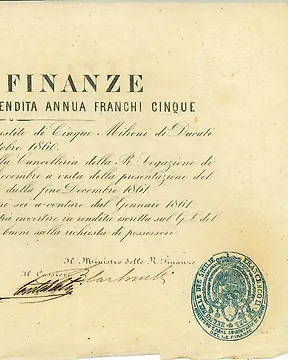 FINANZE
RENDITA ANNUA FRANCHI CINQUE
di Cinque Milioni di Ducati
1860.
Cancelleria della R. Legazione di
a vista della presentazione del
dalla fine Decembre 1861
sei a contare dal Gennaio 1861
invertire in rendita iscritta sul G. L. del
buoni sulla richiesta di possessori
Il Ministro delle R. Finanze
Il Cassiere
DELLE DUE SICILIE FRANCESCO II